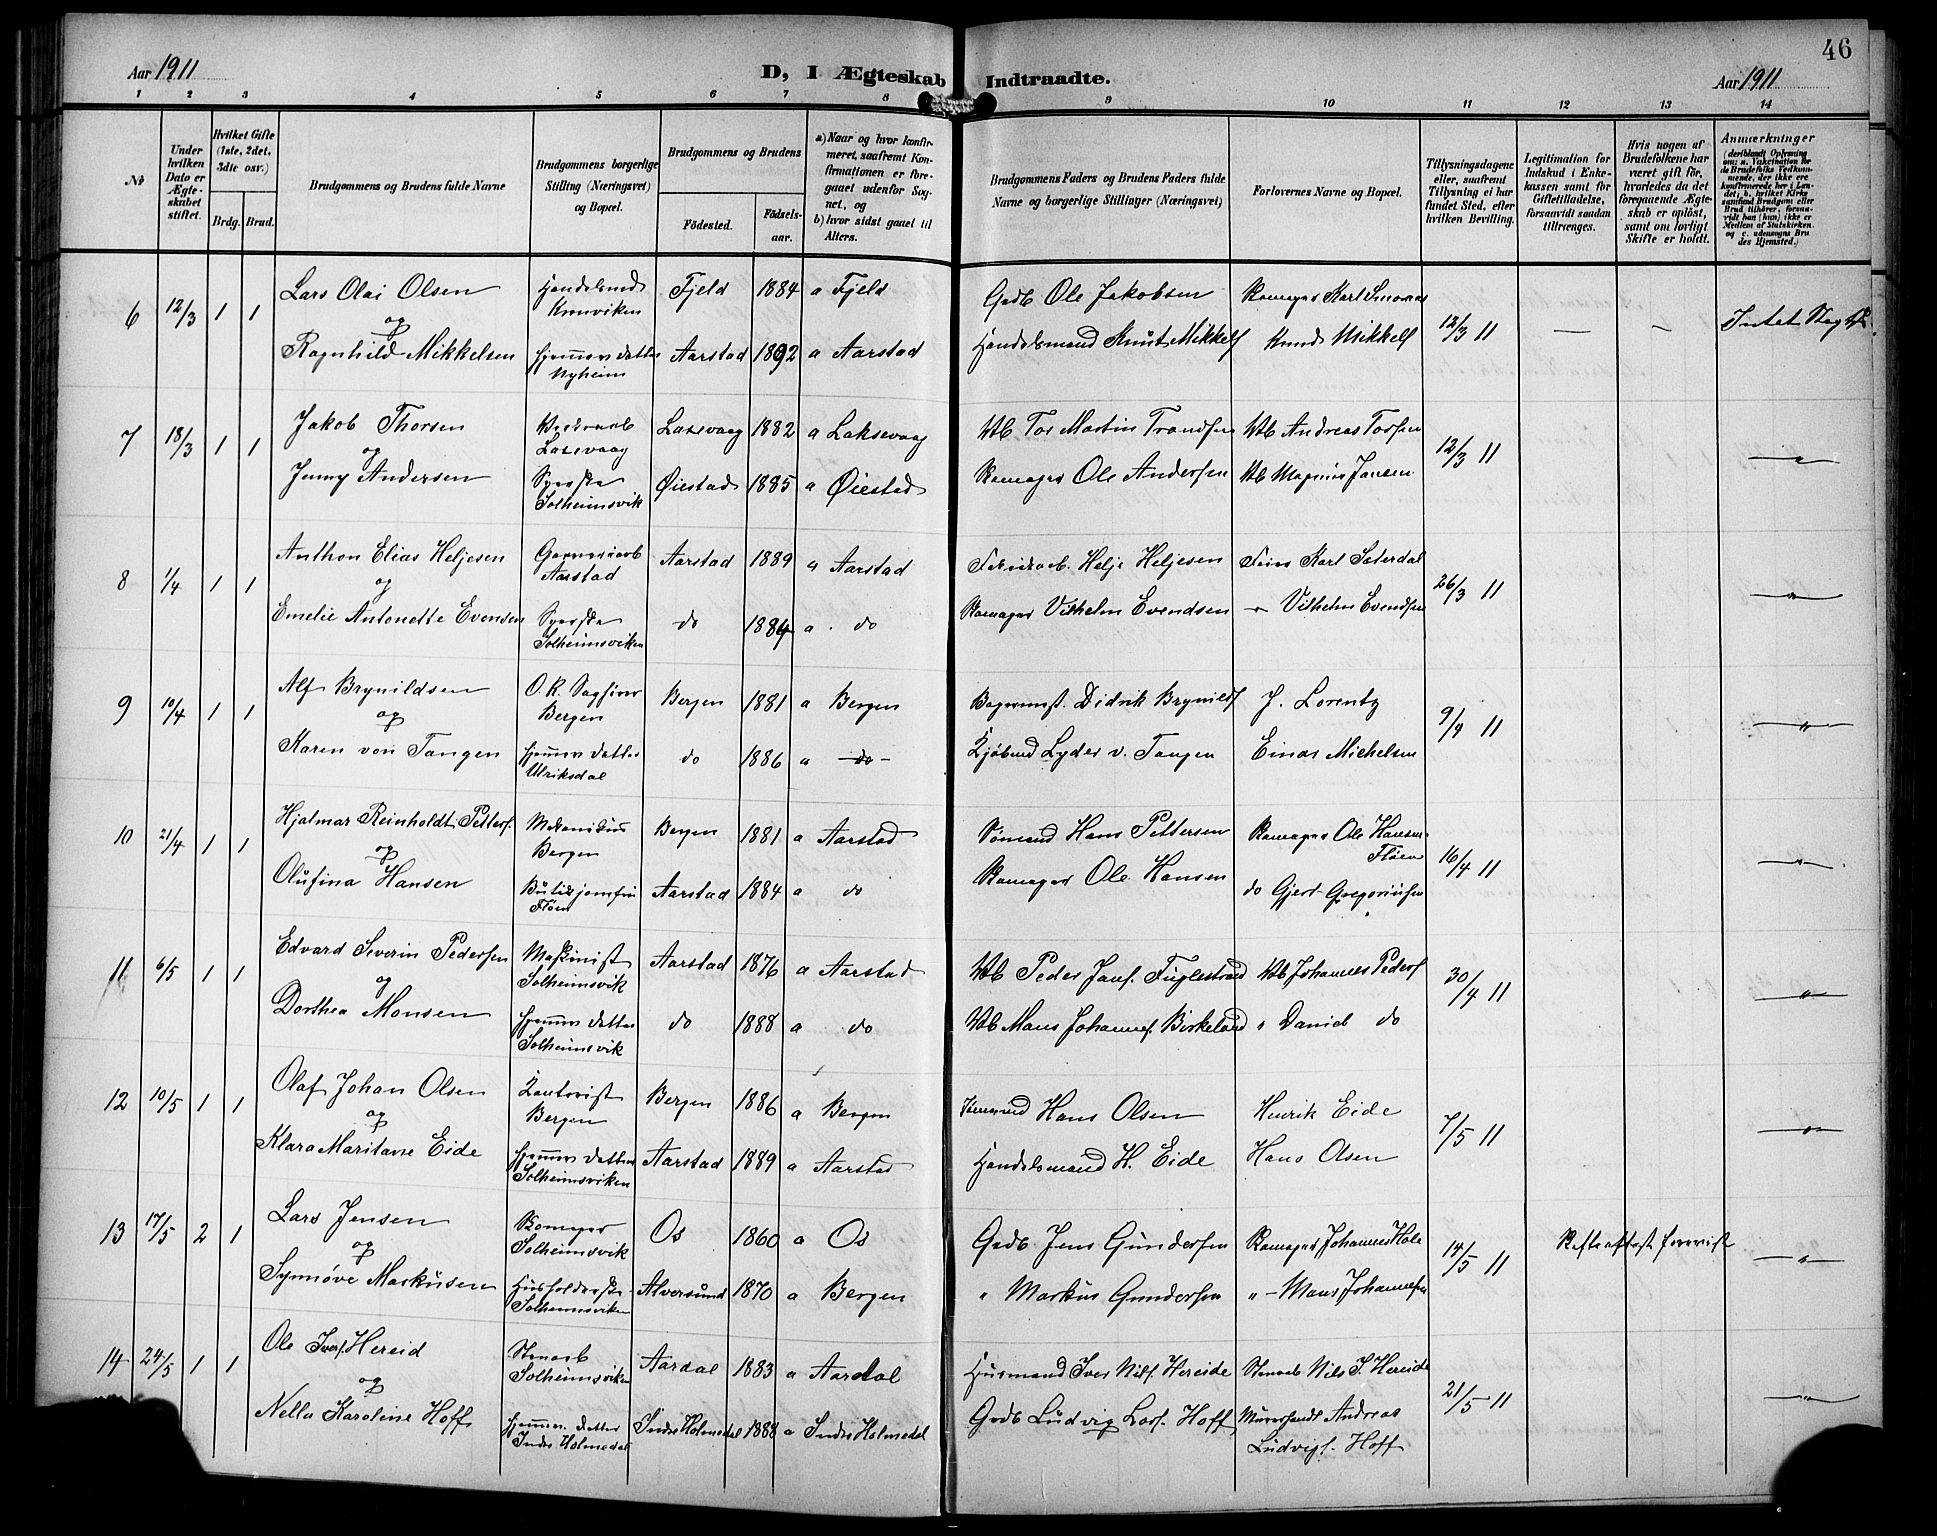 46
Aar 1911
D, I Ægteskab Indtraadte.
Aar 1911
1 2 3 4 5 6 7 8 9 10 11 12 13 14
№
Under hvilken Dato er Ægteskabet stiftet.
Hvilket Gifte (1ste, 2det, 3die osv.)
Brdg. Brud.
Brudgommens og Brudens fulde Navne
Brudgommens borgerlige Stilling (Næringsvei) og Bopæl.
Brudgommens og Brudens
Födested.
Födselsaar.
a) Naar og hvor konfirmeret, saafremt Konfirmationen er foregaaet udenfor Sognet, og
b) hvor sidst gaaet til Alters.
Brudgommens Faders og Brudens Faders fulde Navne og borgerlige Stillinger (Næringsvei)
Forlovernes Navne og Bopæl.
Tillysningsdagene eller, saafremt Tillysning ei har fundet Sted, efter hvilken Bevilling.
Legitimation for Indskud i Enkekassen samt for Giftetilladelse, forsaavidt saadan tiltrænges.
Hvis nogen af Brudefolkene har været gift før, hvorledes da det foregaaende Ægteskab er oplöst, samt om lovligt Skifte er holdt.
Anmærkninger
6 12/3 1 1 Lars Olai Olsen Handelsmd Fjeld 1884 a Fjeld Gadb Ole Jakobsen
og
Ragnhild Mikkelsen Hjemmev datter Nyheim Aarstad 1892 a Aarstad Handelsmand Knut Mikkels Knud Mikkels 12/3 11 — — Intet
7 18/3 1 1 Jakob Thorsen Laxevaag 1882 a Laksevaag Tor Martin Andreas Torsen
og
Jenny Andersen Syerske Solheimsvik Øiestad 1885 a Øiestad Skomager Ole Andersen Magnus Jansen 12/3 11 — " —
8 1/4 1 1 Anthon Elias Heljesen Aarstad Aarstad 1889 a Aarstad Helje Heljesen Karl Saterdal
og
Emelie Antonette Evensen Syerske Solheimsviken do 1884 a do Skomager Vilhelm Evendsen Vilhelm Evendsen 26/3 11 — " —
9 10/4 1 1 Alf Brynildsen O.R. Sagfører Bergen Bergen 1881 a Bergen Bagermst. Didrik Brynilds J. Lorentz
og
Karen von Tangen Hjemmev datter Ulriksdal do 1886 a do Kjøbmd Lyder v. Tangen Einar Michelsen 9/4 11 — " —
10 21/4 1 1 Hjalmar Reinholdt Petters. Mekanikus Bergen Bergen 1881 a Aarstad Sømand Hans Pettersen Skomager Ole Hansen Fløen
og
Olufina Hansen Butikjomfru Fløen Aarstad 1884 a do Skomager Ole Hansen do Gjert Gregoriusen 16/4 11 — " —
11 6/5 1 1 Edvard Severin Pedersen Maskinist Solheimsvik Aarstad 1876 a Aarstad Peder Jans. Fuglestrand Johannes Peders
og
Dorthea Monsen Hjemmev datter Solheimsvik do 1888 a do Mons Johannes. Birkeland " Daniel do 30/4 11 — " —
12 10/5 1 1 Olaf Johan Olsen Kontorist Bergen Bergen 1886 a Bergen Hans Olsen Henrik Eide
og
Klara Maritane Eide Hjemmev datter Solheimsviken Aarstad 1889 a Aarstad Handelsmand H. Eide Hans Olsen 7/5 11 — " —
13 17/5 2 1 Lars Jensen Skomager Solheimsvik Os 1860 a Os Grdb Jens Gundersen Skomager Johannes Hole
og
Synnøve Markusen Husholderske Solheimsviken Alversund 1870 a Bergen " Markus Gundersen " — Mons Johannesen 14/5 11 Skifteattest forevist — " —
14 24/5 1 1 Ole Ivers. Hereid Stenarb Solheimsviken Aardal 1883 a Aardal Husmand Iver Nils. Hereide Stenarb Nils I. Hereide
og
Nella Karoline Hoff Hjemmev datter Indre Holmedal Indre Holmedal 1888 a Indre Holmedal Grdb Ludvig Lars. Hoff Andreas Ludvigs. Hoff 21/5 11 — " —